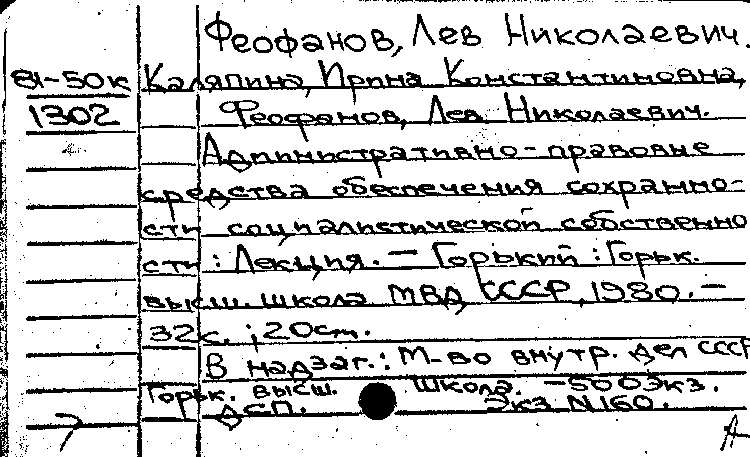 Феофанов, Лев Николаевич.
81-50к Каляпина, Ирина Константиновна,
1302 Феофанов, Лев Николаевич.
Административно-правовые
средства обеспечения сохранно-
сти социалистической собственно
сти : Лекция. — Горький : Горьк.
высш. школа МВД СССР, 1980. —
32с. ; 20см.
В надзаг.: М-во внутр. дел СССР
Горьк. высш. школа. — 500экз.
ДСП. Экз N160.
А